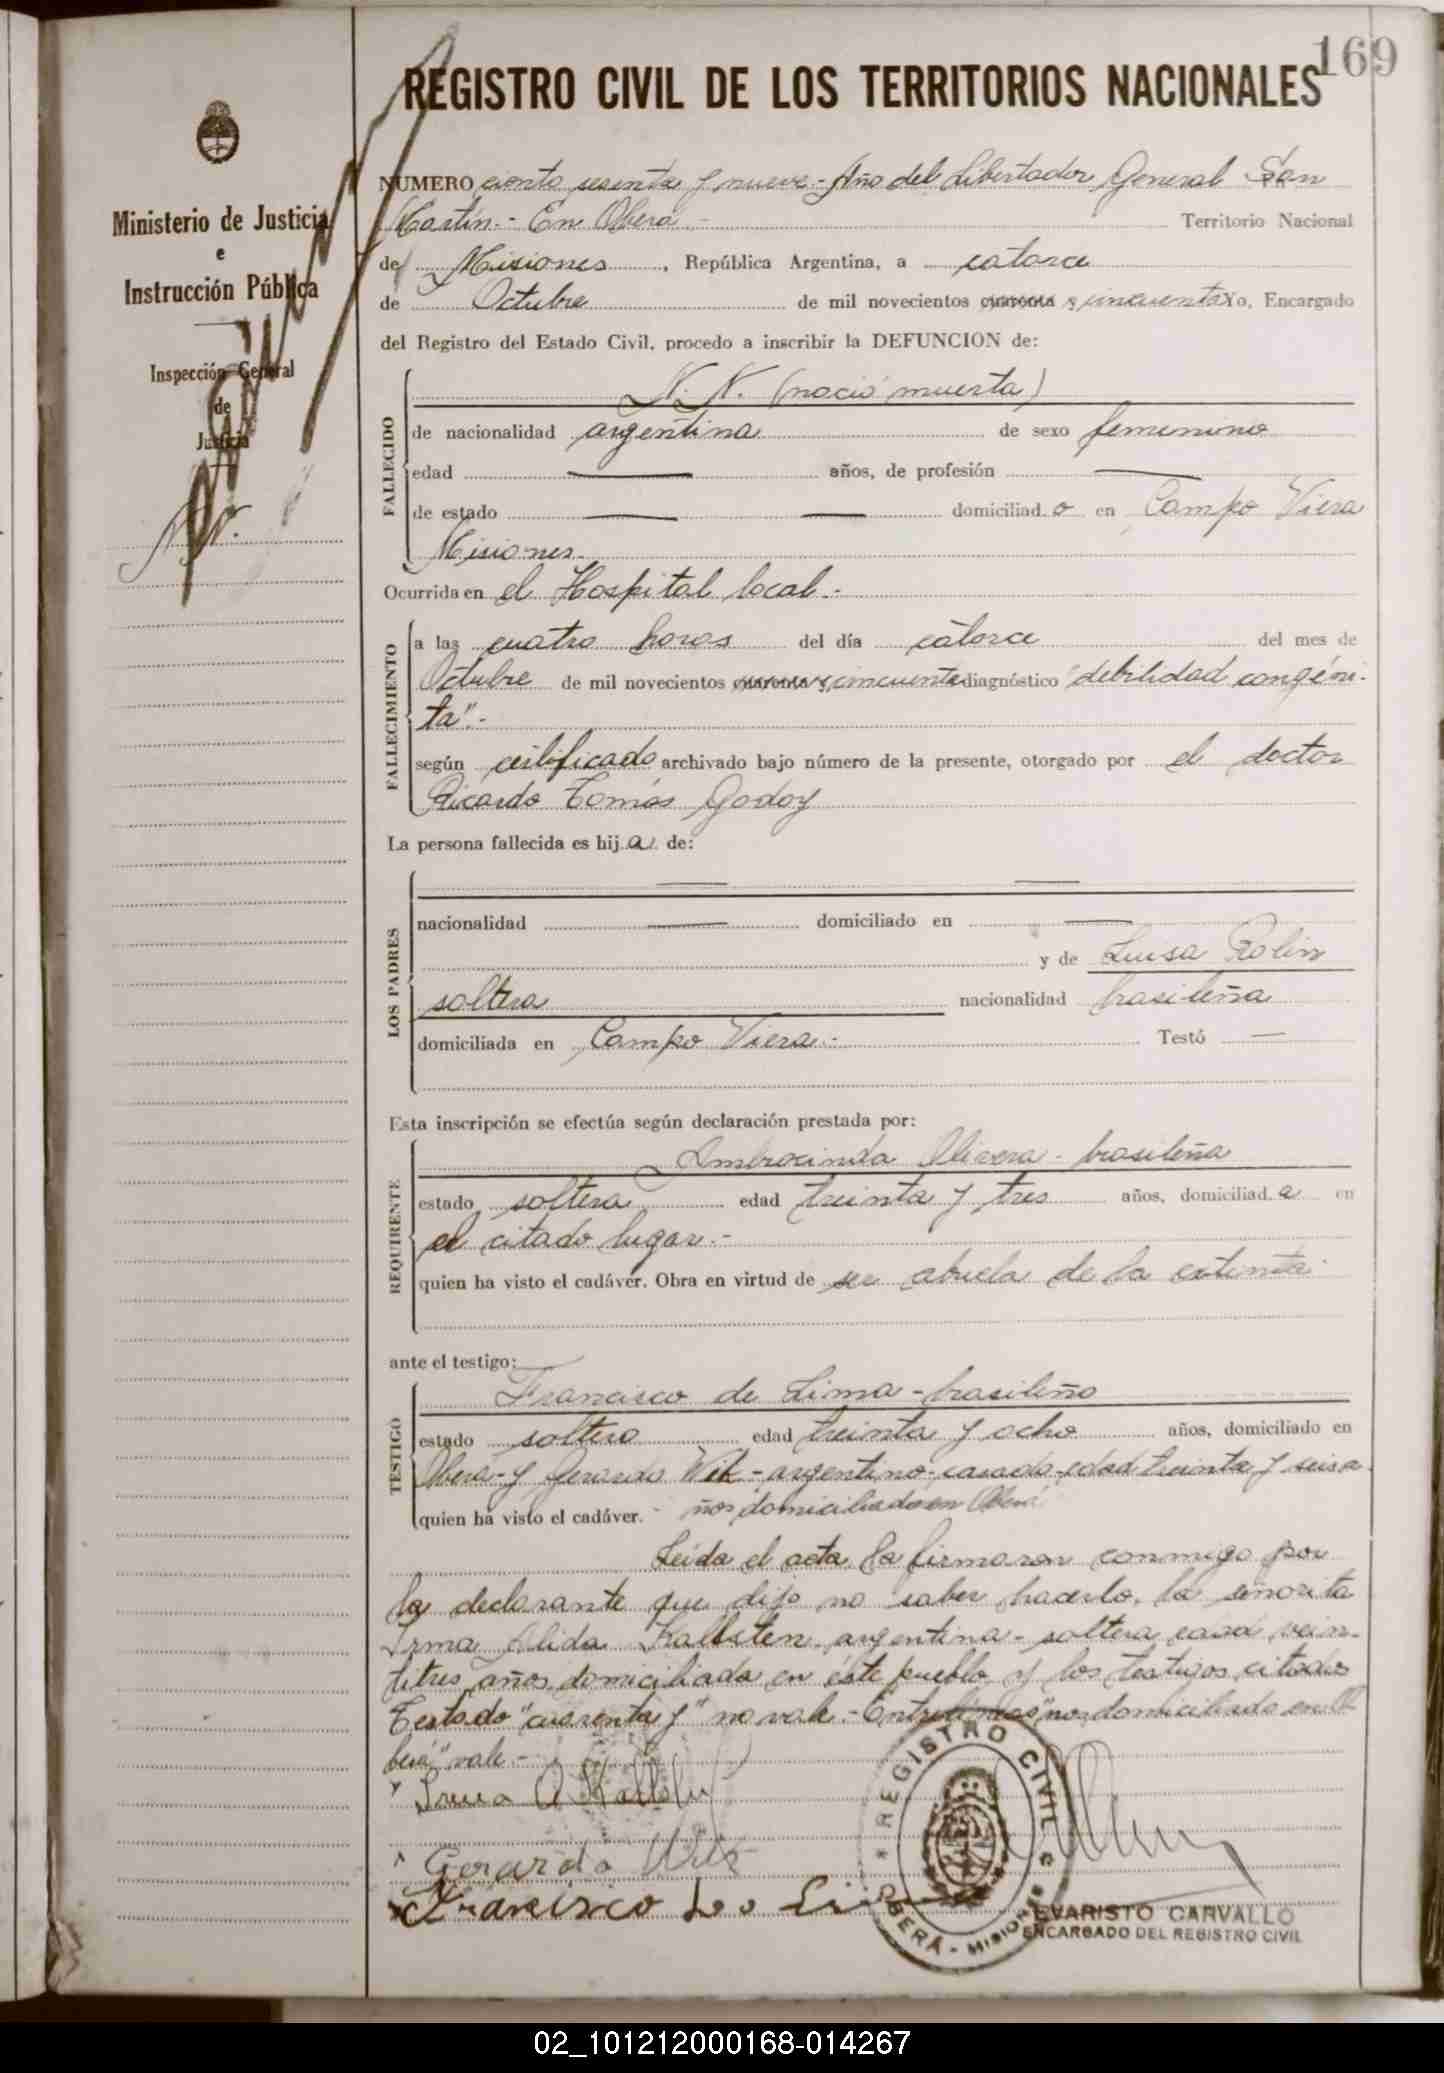 169
REGISTRO CIVIL DE LOS TERRITORIOS NACIONALES
Ministerio de Justicia
e
Instrucción Pública
Inspección General
de
Justicia
N.N.
NUMERO ciento sesenta y nueve - Año del Libertador General San
Martín.- En Oberá - Territorio Nacional
de Misiones, República Argentina, a catorce
de Octubre de mil novecientos cuarenta y cincuenta Yo, Encargado
del Registro del Estado Civil, procedo a inscribir la DEFUNCION de:
FALLECIDO
N. N. (nació muerta)
de nacionalidad argentina de sexo femenino
edad — años, de profesión —
de estado — — domiciliad o en Campo Viera
Misiones.
Ocurrida en el Hospital local.-
FALLECIMIENTO
a las cuatro horas del día catorce del mes de
Octubre de mil novecientos cuarenta y cincuenta diagnóstico "debilidad congéni-
ta".-
según certificado archivado bajo número de la presente, otorgado por el doctor
Ricardo Tomás Godoy
La persona fallecida es hij a de:
LOS PADRES
— —
nacionalidad — domiciliado en —
y de Luisa Rolin
soltera nacionalidad brasileña
domiciliada en Campo Viera.- Testó —
Esta inscripción se efectúa según declaración prestada por:
REQUIRENTE
Ambrocinda Olivera - brasileña
estado soltera edad treinta y tres años, domiciliad a en
el citado lugar.-
quien ha visto el cadáver. Obra en virtud de ser abuela de la extinta.
ante el testigo:
TESTIGO
Francisco de Lima - brasileño
estado soltero edad treinta y ocho años, domiciliado en
Oberá - y Gerardo - argentino - casado - edad treinta y seis a
quien ha visto el cadáver. - ños domiciliado en Oberá
Leída el acta, la firmaron conmigo por
la declarante que dijo no saber hacerlo, la señorita
Irma Alida Kallsten, argentina - soltera, vein-
titres años, domiciliada en éste pueblo y los testigos citados
Testado "cuarenta y" no vale.- Entrelíneas "ños domiciliado en O
berá" vale.-
Irma A Kallsten
Gerardo
Francisco de Li
REGISTRO CIVIL
OBERÁ - MISIONES
EVARISTO CARVALLO
ENCARGADO DEL REGISTRO CIVIL
02_101212000168-014267